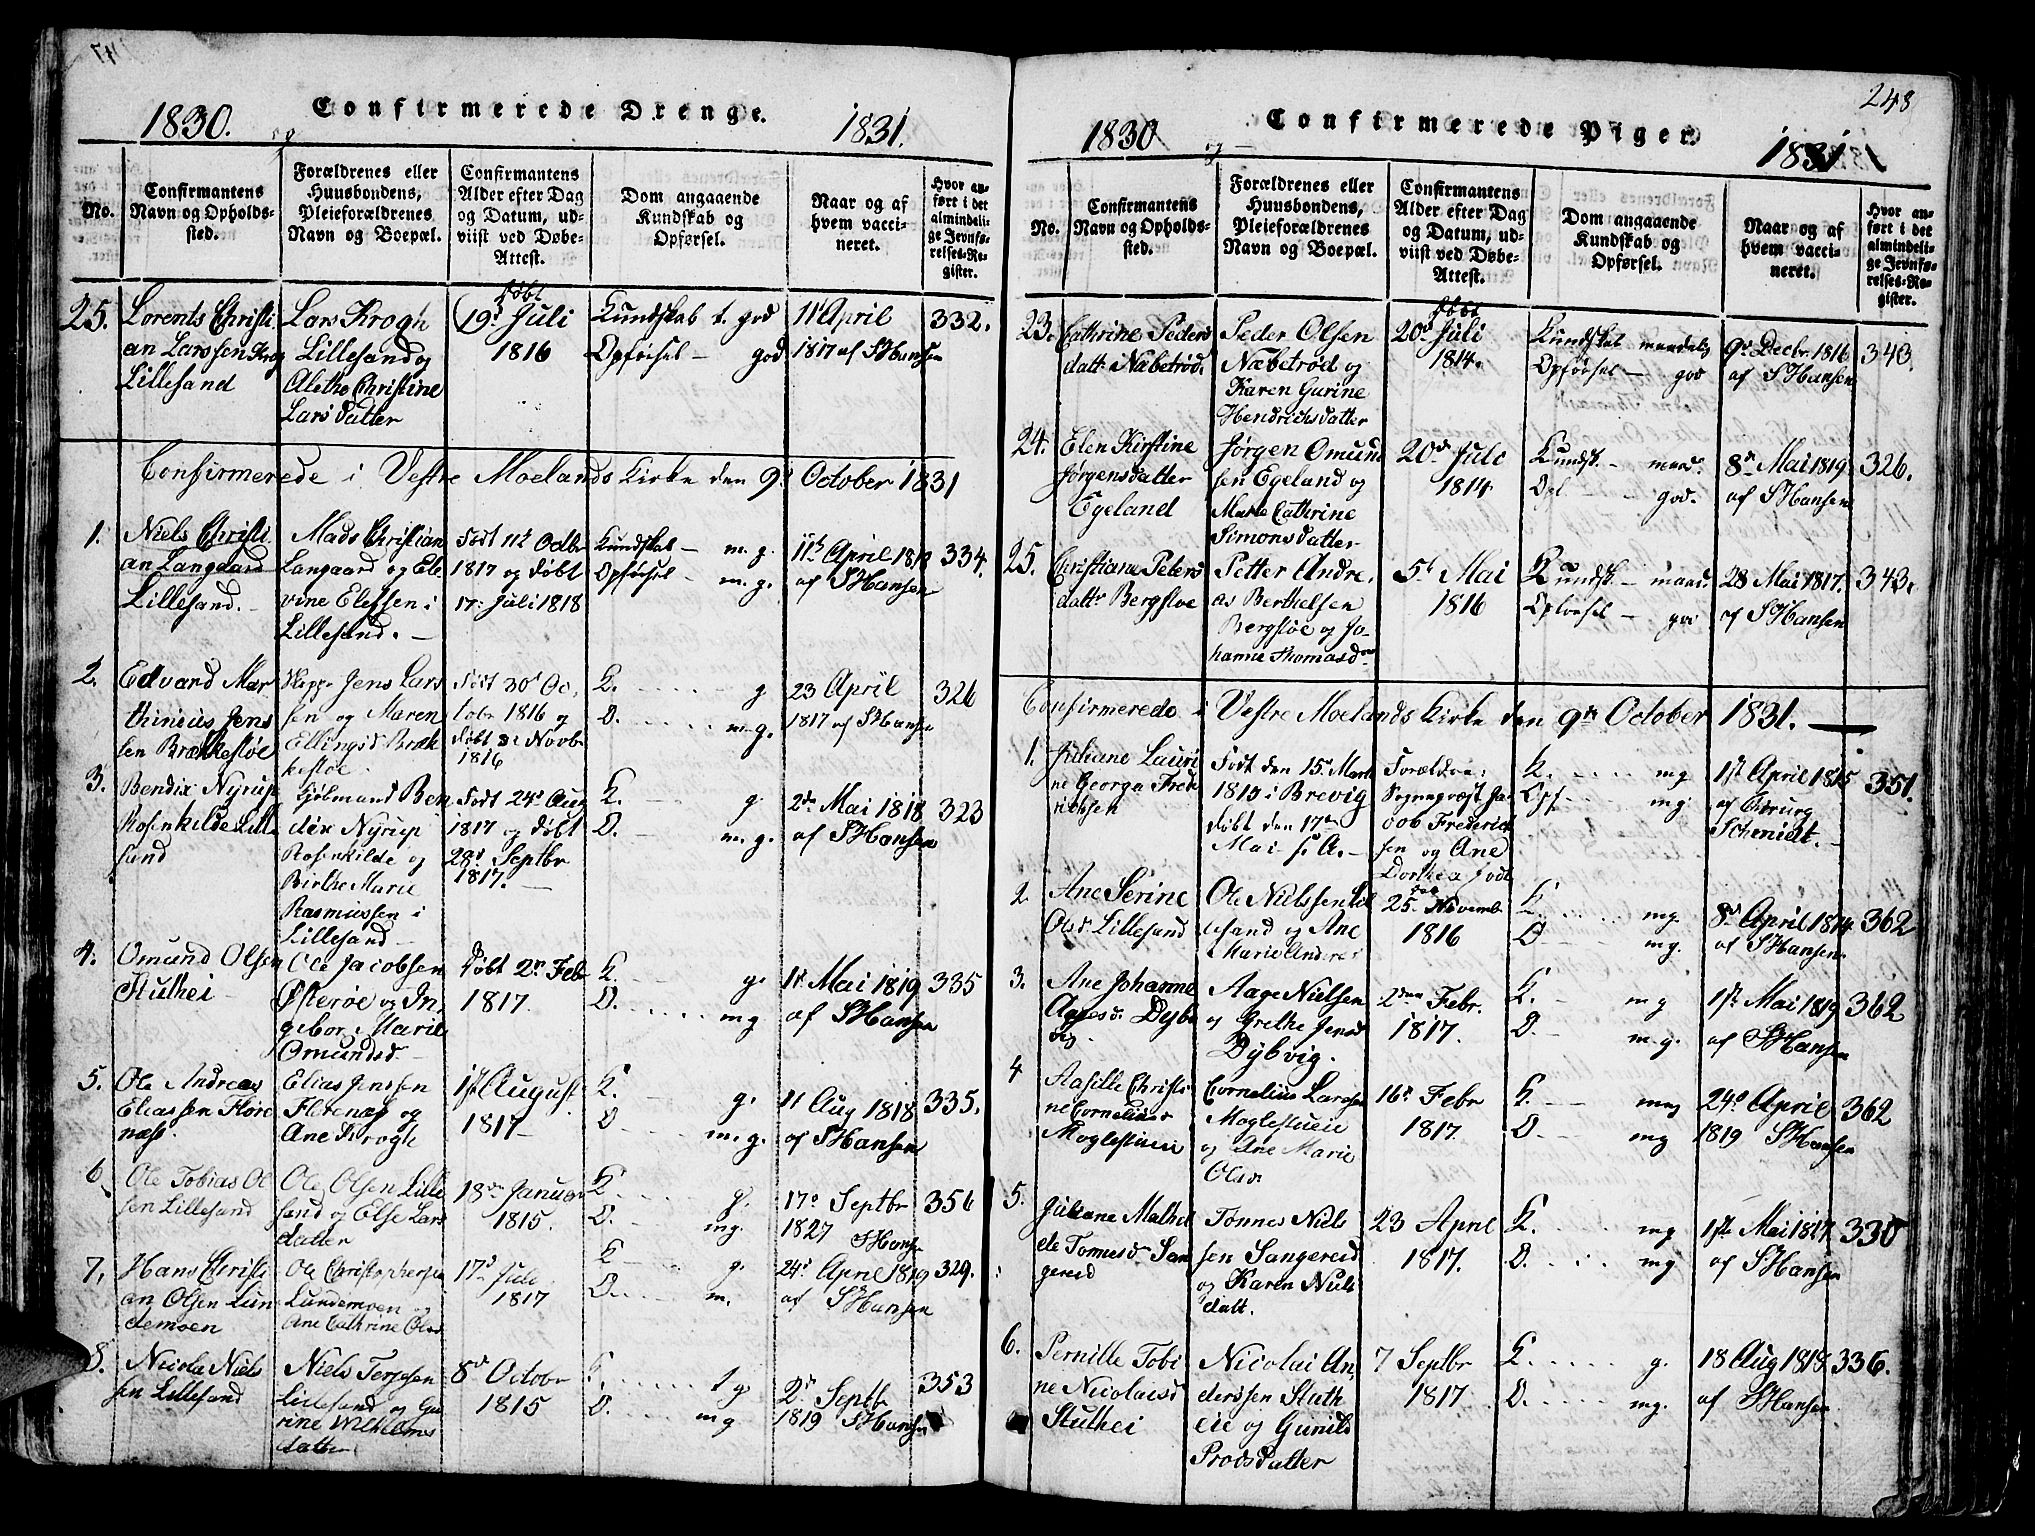 Confirmerede Drenge.
1830. og 1831.
No.
Confirmantens
Navn og Opholds-
sted.
Forældrenes eller
Huusbondens,
Pleieforældrenes
Navn og Boepæl.
Confirmantens
Alder efter Dag
og Datum, ud-
viist ved Døbe-
Attest.
Dom angaaende
Kundskab og
Opførsel.
Naar og af
hvem vacci-
neret.
Hvor an-
ført i det
almindeli-
ge Jevnfø-
relses-Re-
gister.
25.
Lorents Christi
an Larssen Krog
Lillesand
Lars Krogh
Lillesand og
Alethe Christine
Lars datter
født
19d Juli
1816
Kundskab t. god
Opførsel — god
11t April
1817 af SHansen
332.
Confirmerede i Vestre Moelands Kirke den 9d October 1831
1.
Niels Christi
an Langaard
Lillesand. —
Mads Christian
Langaard og Ele
vine Elefsen i
Lillesand. —
Født 11t Octbr
1817 og døbt
17. Juli 1818
Kundskab — m. g.
Opførsel — m. g.
11te April 1819
af SHansen
334.
2.
Edvard Mar
thinius Jens
sen Brækkestøe
Skipp. Jens Lars
sen og Maren
Ellingsd Bræk
kestøe.
Født 30d Oc
tobr 1816 og
døbt Novbr
1816
K. g
O. m. g.
23 April
1817 af SHansen
326
3.
Bendix Nyrup
Rosenkilde Lille
sand
Kjøbmand Ben
dix Nyrup
Rosenkilde og
Birthe Marie
Rasmussen i
Lillesand —
Født 24d Aug
1817 og døbt
28d Septbr
1817. —
K. — g.
O. — m. g.
2de Mai 1818
af SHansen
323
4.
Omund Olsen
Stuthei —
Ole Jacobsen
Østerøe og In
gebor Marie
Omundsd —
Døbt 2n Febr
1817.
K. g.
O. m g
1t Mai 1819
af SHansen
335
5.
Ole Andreas
Eliassen Flore
næs.
Elias Jenssen
Florenæs og
Ane Krogh
1st August
1817 —
K. g.
O. m. g.
11 Aug 1818
af SHansen
335.
6
Ole Tobias Ol
sen Lillesand
Ole Olsen Lille
sand og Else Lars
datter
18de Januar
1815.
K. g.
O. mg.
17d Septbr
1827 SHansen
356
7.
Hans Christi
an Olsen Lun
demoen
Ole Christophersen
Lundemoen og
Ane Cathrine Olsd
17d Juli
1817
K — g.
O. m.
24d April 1819
af SHansen
329.
8.
Nicolai Niels
sen Lillesand
Niels Terjesen
Lillesand og Gu
rine Wilhelms
datter
8d Octobr
1815
K. t g.
O. m g
2d Septb
1819 SHansen
353
248
Confirmerede Piger.
1830 og 1831
No.
Confirmantens
Navn og Opholds-
sted.
Forældrenes eller
Huusbondens,
Pleieforældrenes
Navn og Boepæl.
Confirmantens
Alder efter Dag
og Datum, ud-
viist ved Døbe-
Attest.
Dom angaaende
Kundskab og
Opførsel.
Naar og af
hvem vacci-
neret.
Hvor an-
ført i det
almindeli-
ge Jevnfø-
relses-Re-
gister.
23.
Cathrine Peders
datt. Næbetrød.
Peder Olsen
Næbetrød og
Karen Gurine
Hendrichsdatter
født
20d Juli
1814.
Kundskab maadelig
Opførsel — god
9d Decbr 1816
af SHansen
343.
24.
Elen Kirstine
Jørgensdatter
Egeland
Jørgen Omund
sen Egeland og
Marie Cathrine
Simonsdatter
20d Juli
1814
Kundsk. — maad.
Opf. — god.
8de Mai 1819
af SHansen
326.
25.
Christiane Peters
dattr Bergstøe
Petter Andre
as Berthelsen
Bergstøe og Jo-
hanne Thomasd
5t Mai
1816
Kundsk. — maad.
Opførsel — god
28 Mai 1817.
af SHansen
343.
Confirmerede i Vestre Moelands Kirke den 9de October 1831. —
1.
Juliane Lauri
ne Georga Fred
richsen
Født den 15d Marts
1815 i Brevig
døbt den 17de
Mai s. A. —
Forældre:
Sogneprest Ja
cob Frederich
sen og Ane
Dorthea
K. mg
Opf. mg.
1st April 1815
af Chirurg
Schmidt. —
351.
2
Ane Serine
Olsd Lillesand
Ole Nielssen Lil
lesand og Ane
Marie Anders
25. Novemb
1816
K. mg.
O — mg.
8d April 1814
af SHansen
362
3.
Ane Johanne
Aagesd Dyb
vig.
Aage Nielsen
og Grethe Jensd
Dybvig.
2den Febr.
1817.
K. — m g
O. — m. g.
1ste Mai 1819
af SHansen
362
4
Aasille Christi
ne Cornelius
Moglestueie
Cornelius Larssen
Moglestueie
og Ane Marie
Olsd
16d Febr
1817.
K. — mg
O. — mg
24d April
1819 SHansen
362
5.
Juliane Mathil
de Tonnesd San
gereid
Tønnes Niels
sen Sangereid
og Karen Niels
datt.
23 April
1817.
K. mg
O. mg
1ste Mai 1817.
af SHansen
330
6.
Pernille Tobi
ne Nicolaisd
Stuthei
Nicolai An
derssen Stuth
eie og Gunild
Prodsdatter
7 Septbr
1817.
K. g.
O. mg.
18 Aug 1818.
af SHansen
336.